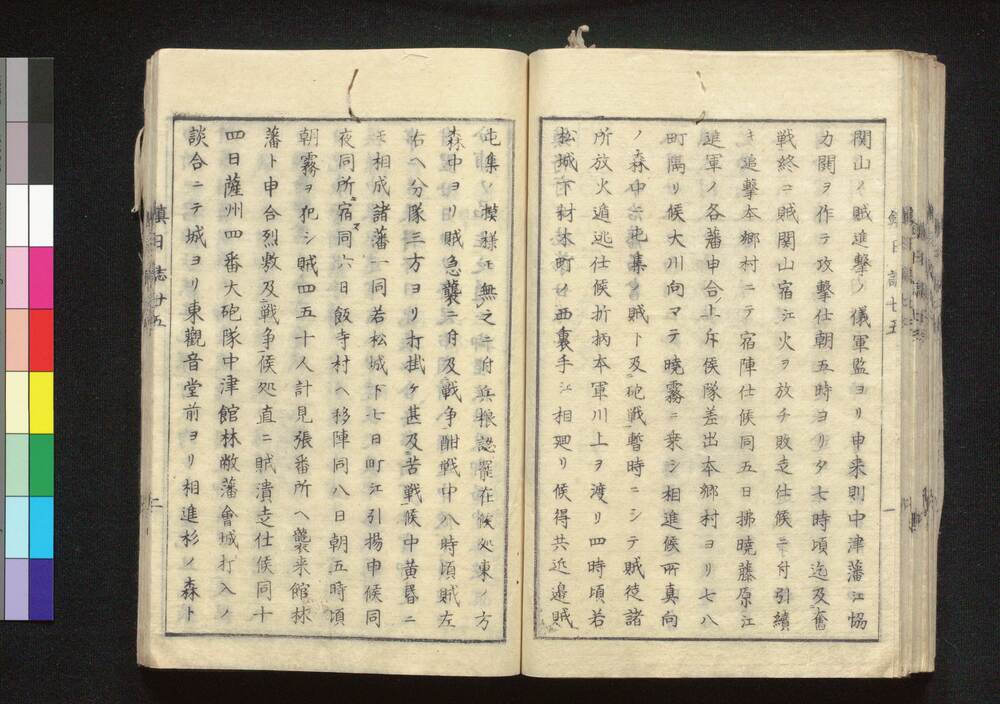 関山ノ賊進撃ノ儀軍監ヨリ申来則中津藩江恊
力閧ヲ作テ攻撃仕朝五時ヨリ夕七時頃迄及奮
戦終ニ賊関山宿江火ヲ放チ敗走仕候ニ付引續
キ追撃本郷村ニテ宿陣仕候同五日拂暁藤原江
進軍ノ各藩申合ノ上斥候隊差出本郷村ヨリ七八
町隔リ候大川向マテ暁霧ニ乗シ相進候所真向
ノ森中ニ屯集ノ賊ト及砲戦暫時ニシテ賊徒諸
所放火遁逃仕候折柄本軍川上ヲ渡リ四時頃若
松城下材木町ノ西裏手江相廻リ候得共近邉賊
屯集ノ摸様モ無之ニ付兵根認罷在候処東ノ方
森中ヨリ賊急襲ニ付及戦争酣戦中八時頃賊左
右ヘ分隊三方ヨリ打掛ケ甚及苦戦候中黄昏ニ
モ相成諸藩一同若松城下七日町江引揚申候同
夜同所ニ宿同六日飯寺村ヘ移陣同八日朝五時頃
朝霧ヲ犯シ賊四五十人計見張番所ヘ襲来館林
藩ト申合烈敷及戦争候処直ニ賊潰走仕候同十
四日薩州四番大砲隊中津館林敝藩會城打入ノ
談合ニテ城ヨリ東觀音堂前ヨリ相進杉ノ森ト
鎮日志七五
二